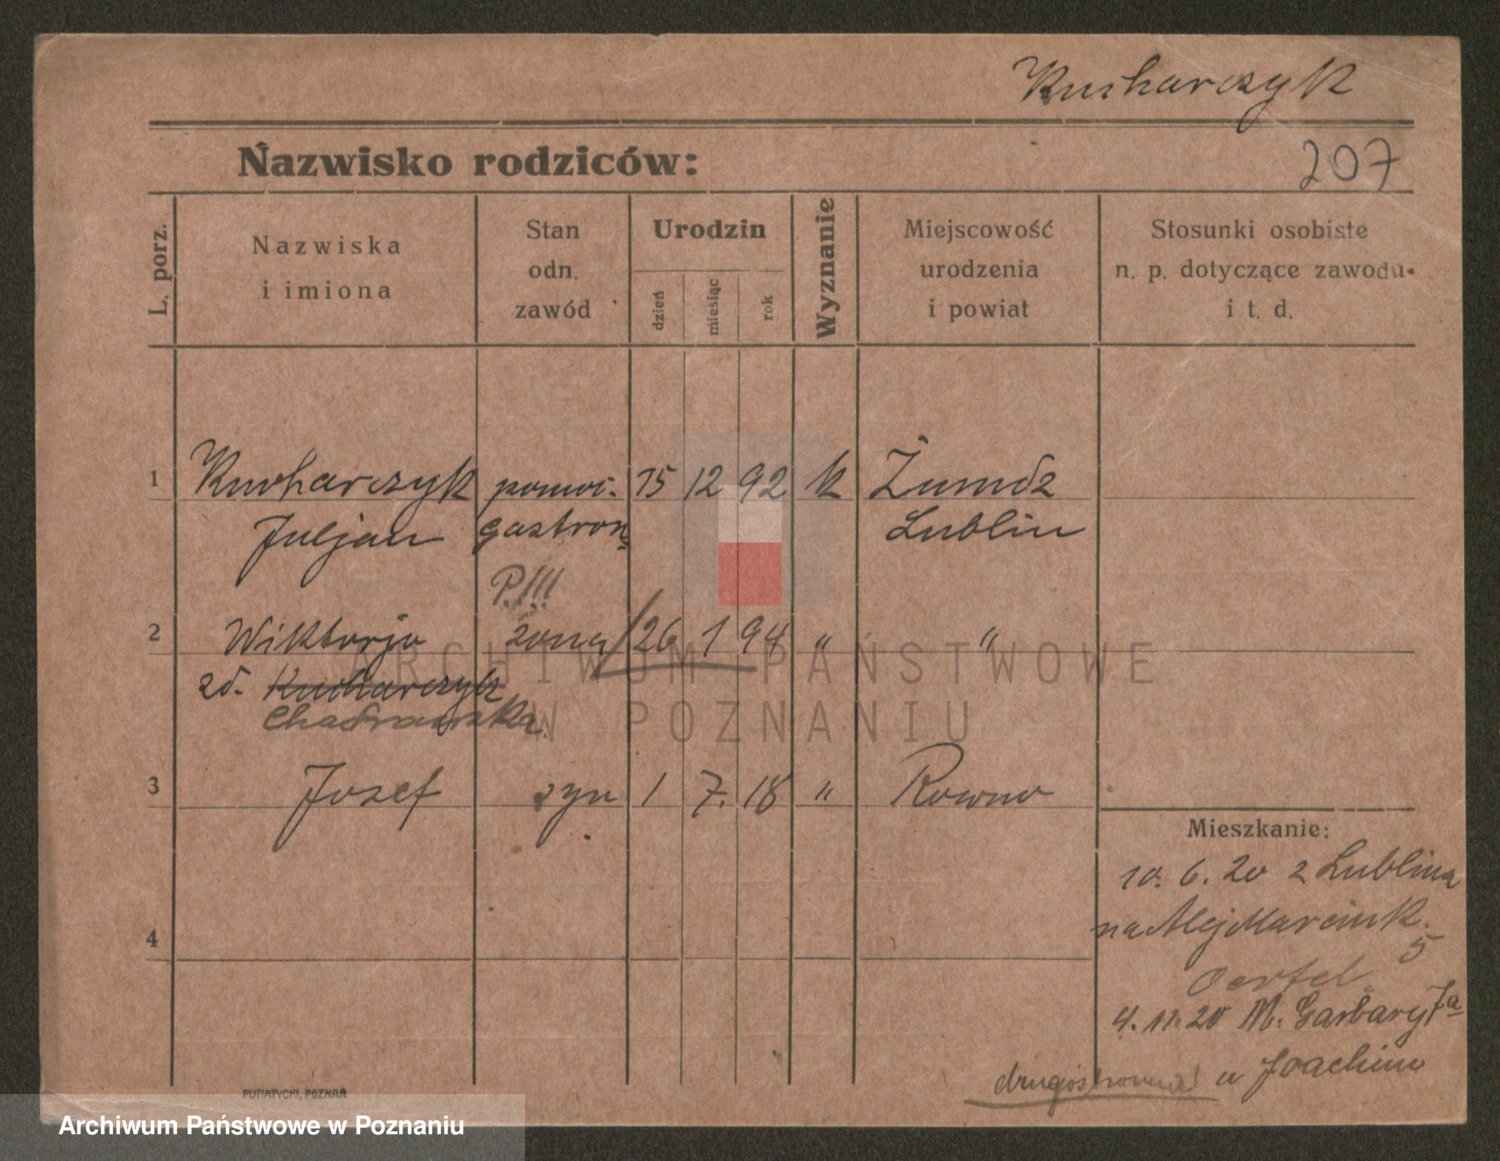 Kucharczyk
207
Nazwisko rodziców:
L. porz.
Nazwiska
i imiona
Stan
odn.
zawód
Urodzin
dzień
miesiąc
rok
Wyznanie
Miejscowość
urodzenia
i powiat
Stosunki osobiste
n. p. dotyczące zawodu
i t. d.
1 Kucharczyk pomoc. 15 12 92 k Żumdz
Juljan gastron. Lublin
P.!!!
2 Wiktorja żona 26 1 94 " "
zd. Kucharczyk
3 Josef syn 1 7. 18 " Rowno
Mieszkanie:
10. 6. 20 z Lublina
na Alej Marcink.
5
Oertel.
4. 11. 20 M. Garbary 7a
u Joachima
drugostronnie!
4
PUTIATYCKI, POZNAŃ
ARCHIWUM PAŃSTWOWE
W POZNANIU
Archiwum Państwowe w Poznaniu